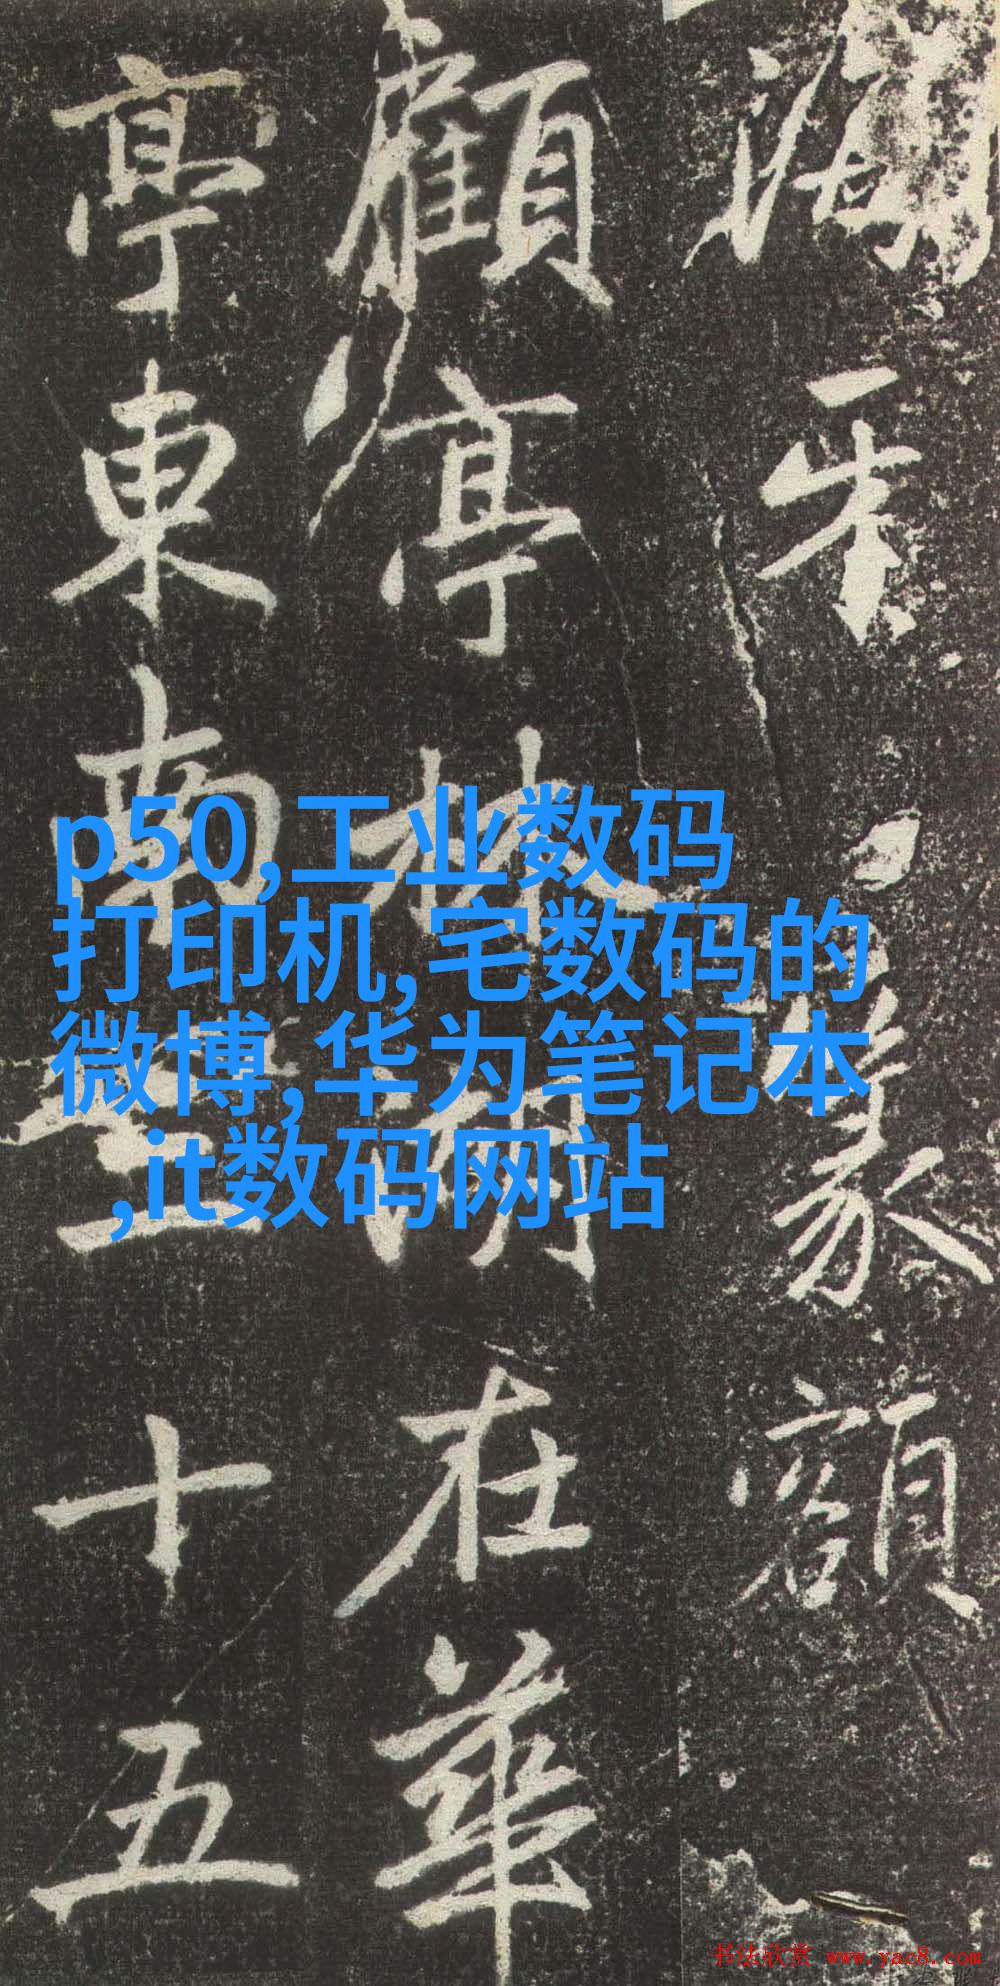 篆額
顧亭林湖在華
亭東南三十五
p50,工业数码
打印机,宅数码的
微博,华为笔记本
,it数码网站
书法欣赏 www.yac8.com